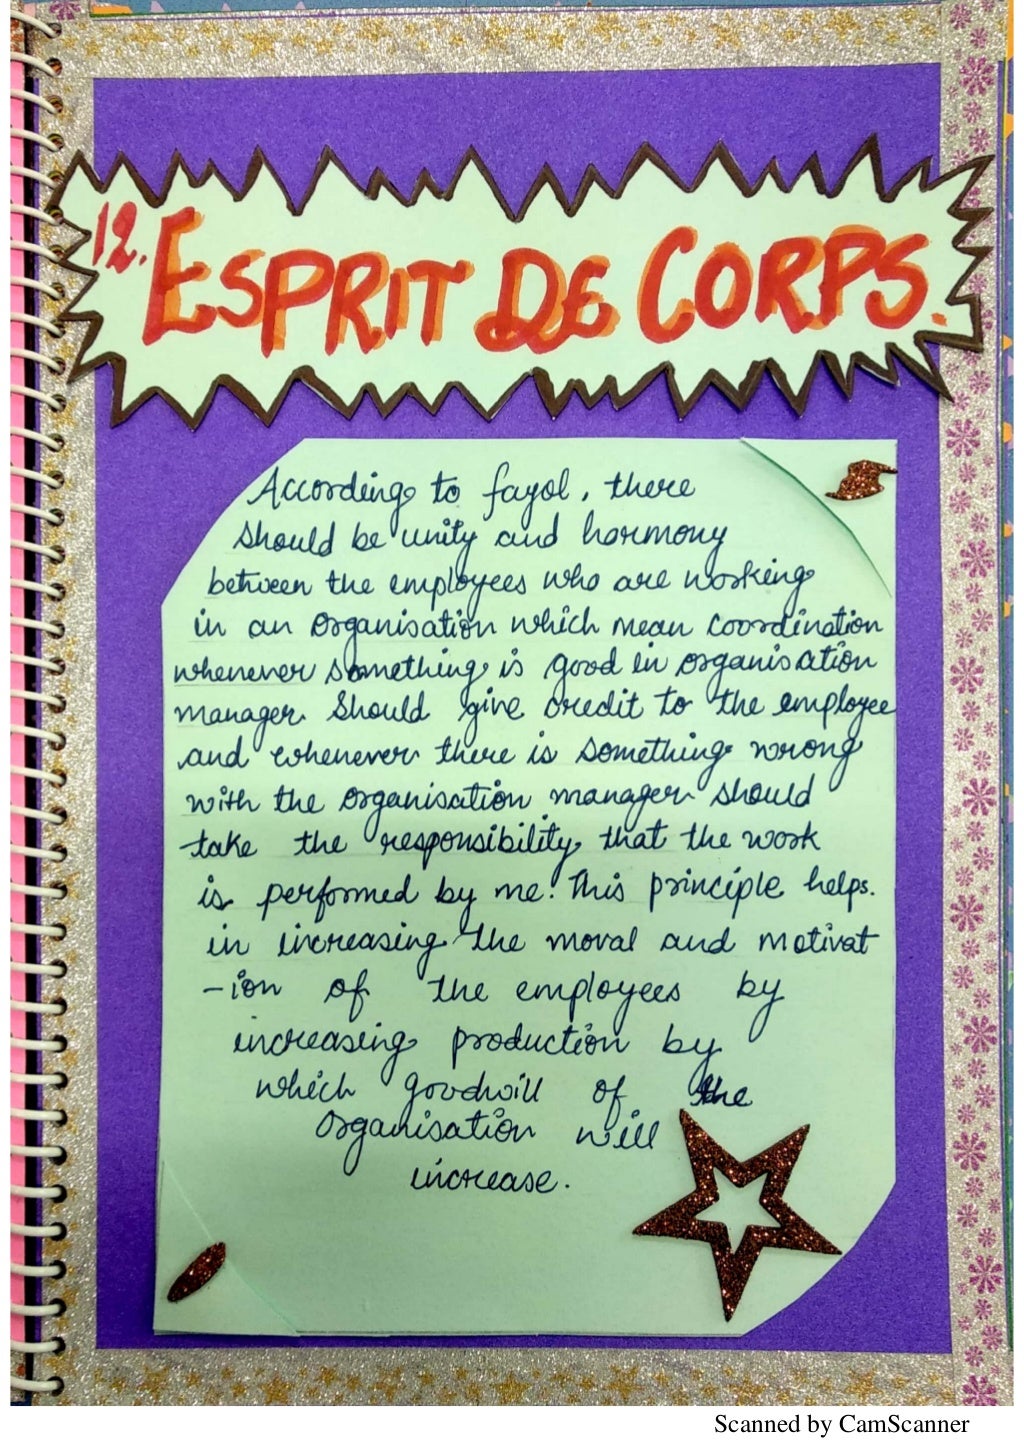 12. ESPRIT DE CORPS.
According to fayol, there
should be unity and harmony
between the employees who are working
in an organisation which mean coordination
whenever something is good in organisation
manager should give credit to the employee
and whenever there is something wrong
with the organisation manager should
take the responsibility that the work
is performed by me. This principle helps.
in increasing the moral and motivat
-ion of the employees by
increasing production by
which goodwill of the
organisation will
increase.
Scanned by CamScanner